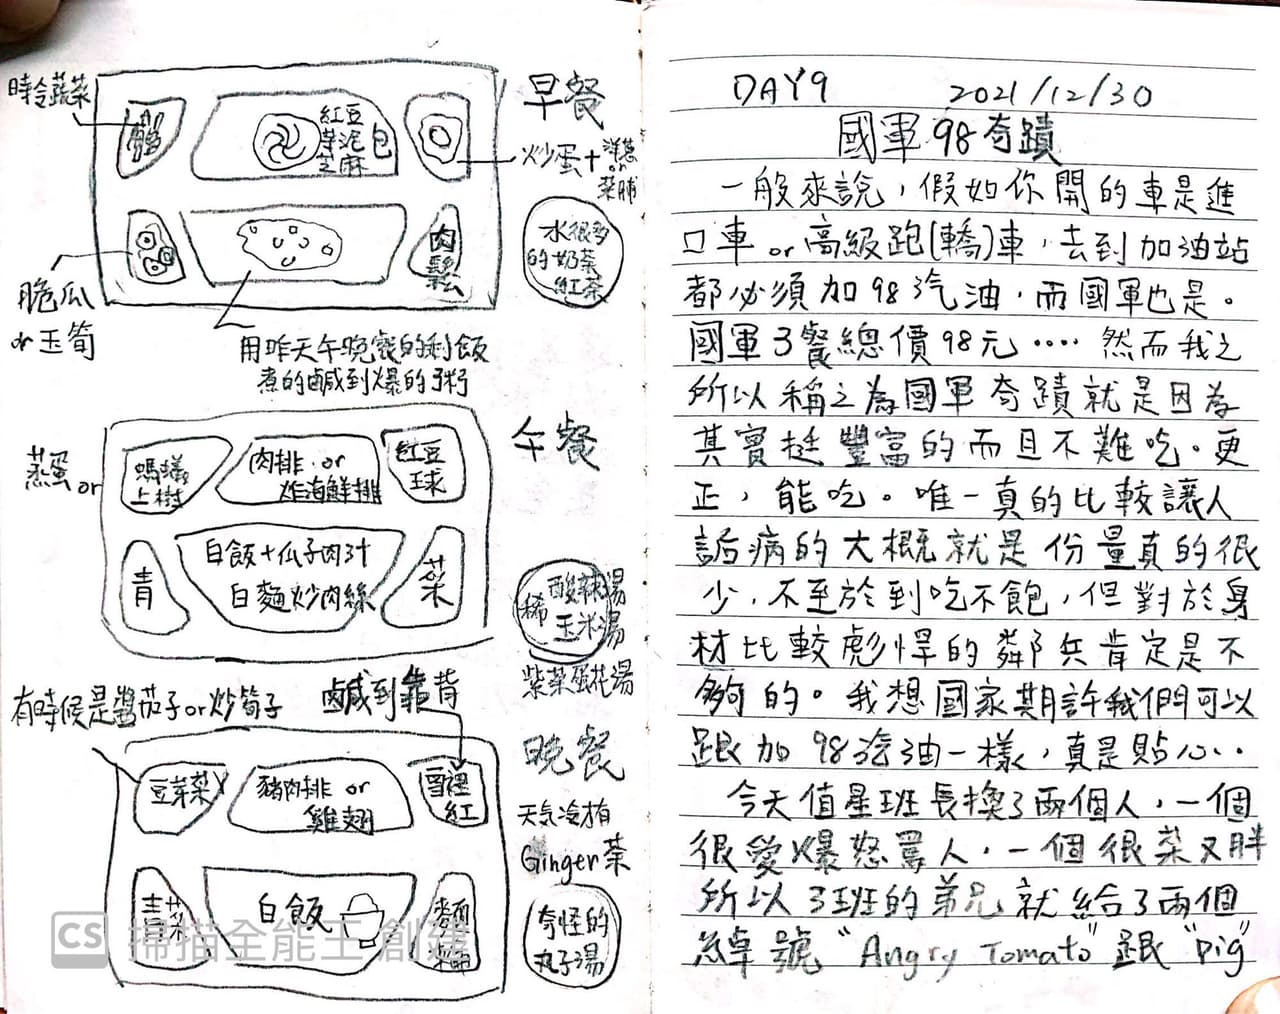 時令蔬菜
早餐
紅豆
芋泥
芝麻
包
炒蛋+洋蔥
or
菜脯
水很多
的奶茶
紅茶
肉
鬆
脆瓜
or玉筍
用昨天午晚餐的剩飯
煮的鹹到爆的粥
午餐
蒸蛋or
螞蟻
上樹
肉排 or
炸海鮮排
紅豆
球
青
白飯+瓜子肉汁
白麵炒肉絲
菜
稀
酸辣湯
玉米湯
紫菜蛋花湯
有時候是醬茄子or炒筍子
鹹到靠背
晚餐
豆芽菜
豬肉排 or
雞翅
雪裡
紅
天氣冷有
Ginger茶
青
菜
白飯
麵
奇怪的
丸子湯
CS 掃描全能王 創建
DAY9 2021/12/30
國軍98奇蹟
一般來說，假如你開的車是進
口車 or 高級跑(轎)車，去到加油站
都必須加98汽油，而國軍也是。
國軍3餐總價98元‥‥ 然而我之
所以稱之為國軍奇蹟就是因為
其實挺豐富的而且不難吃。更
正，能吃。唯一真的比較讓人
詬病的大概就是份量真的很
少，不至於到吃不飽，但對於身
材比較彪悍的鄰兵肯定是不
夠的。我想國家期許我們可以
跟加98汽油一樣，真是貼心‥
今天值星班長換了兩個人，一個
很愛爆怒罵人，一個很菜又胖
所以3班的弟兄就給了兩個
綽號"Angry Tomato"跟"pig"